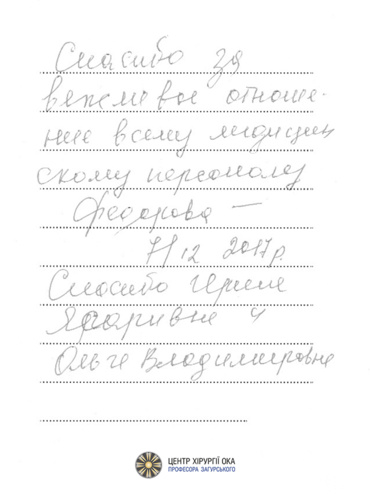 Спасибо за
вежливое отноше-
ние всему медицин
скому персоналу
Федорова —
7/12 2017р.
Спасибо Ирине
и
Ольге Владимировне
ЦЕНТР ХІРУРГІЇ ОКА
ПРОФЕСОРА ЗАГУРСЬКОГО